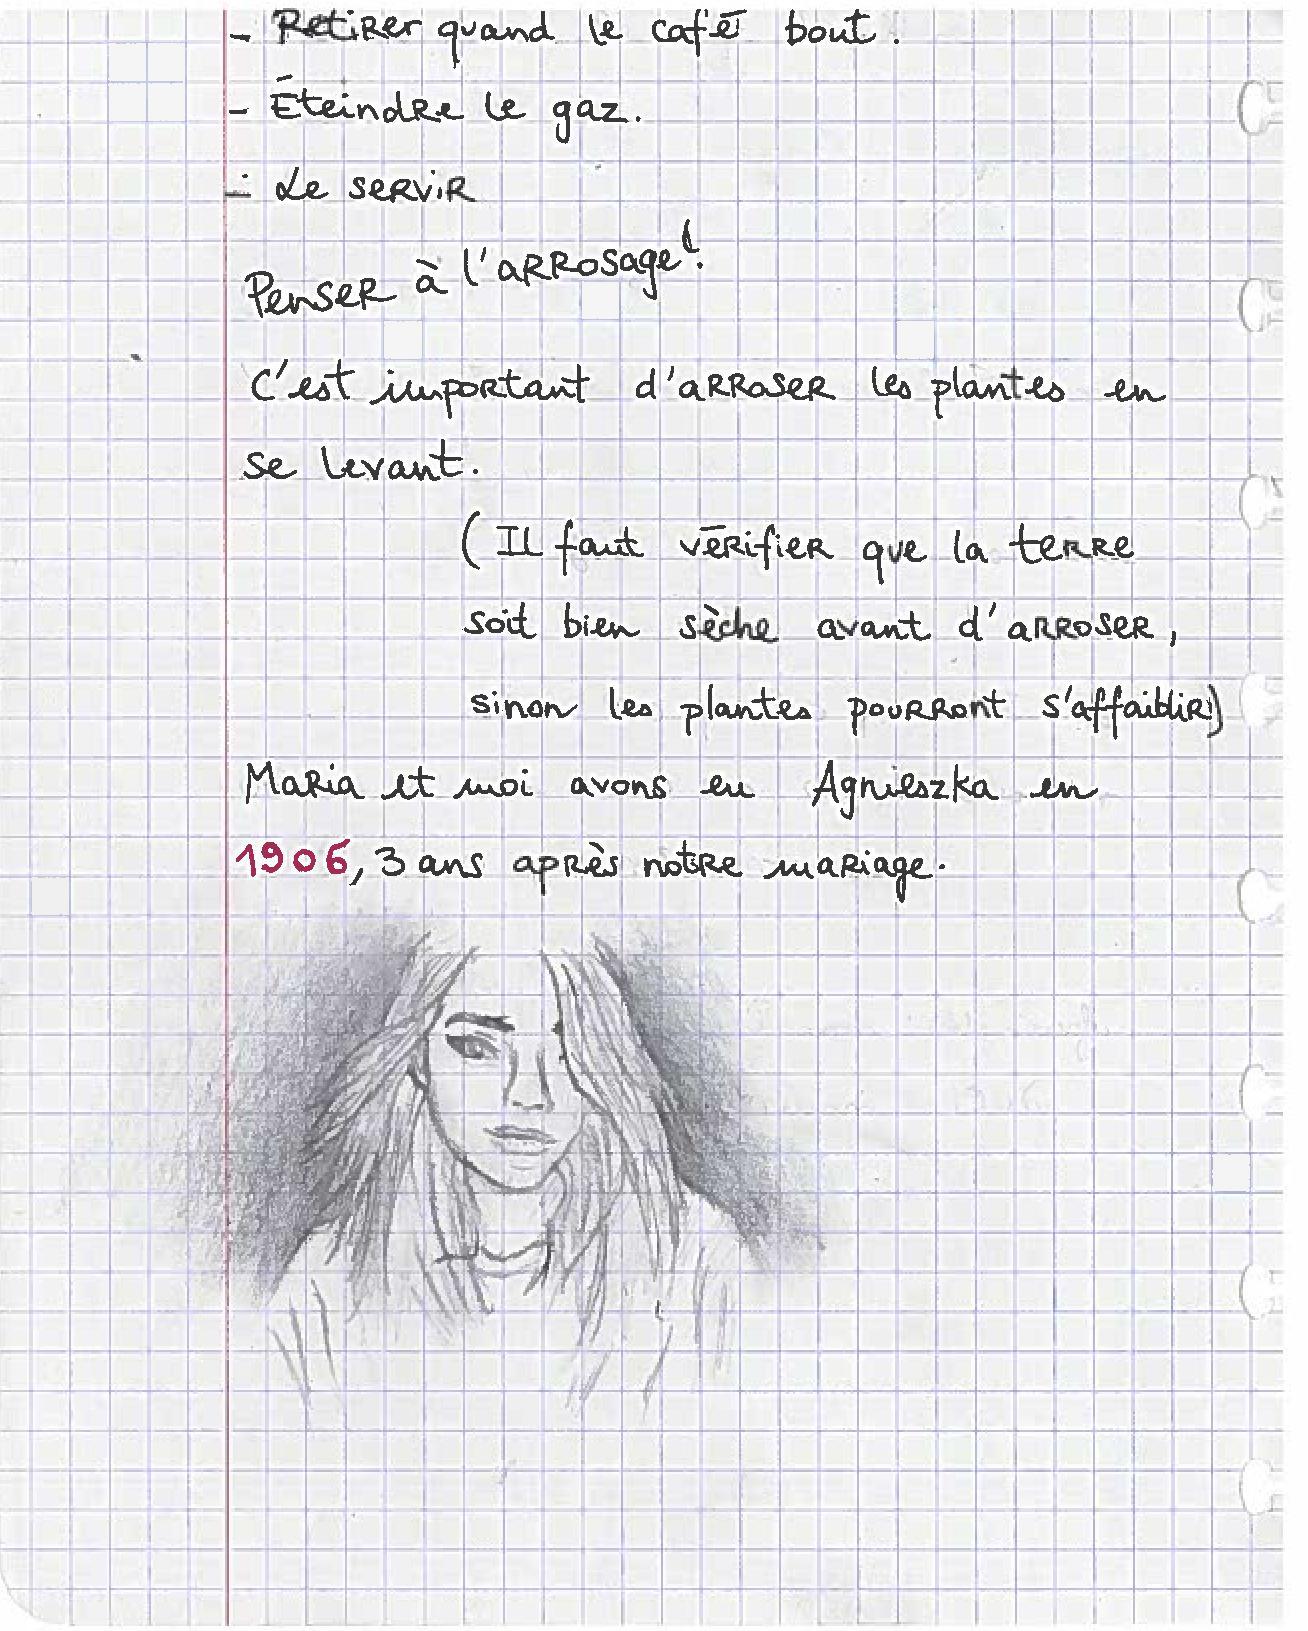 - Retirer quand le café bout.
- Éteindre le gaz.
- Le servir
Penser à l'arrosage!
C'est important d'arroser les plantes en
se levant.
(Il faut vérifier que la terre
soit bien sèche avant d'arroser,
sinon les plantes pourront s'affaiblir)
Maria et moi avons eu Agnieszka en
1906, 3 ans après notre mariage.